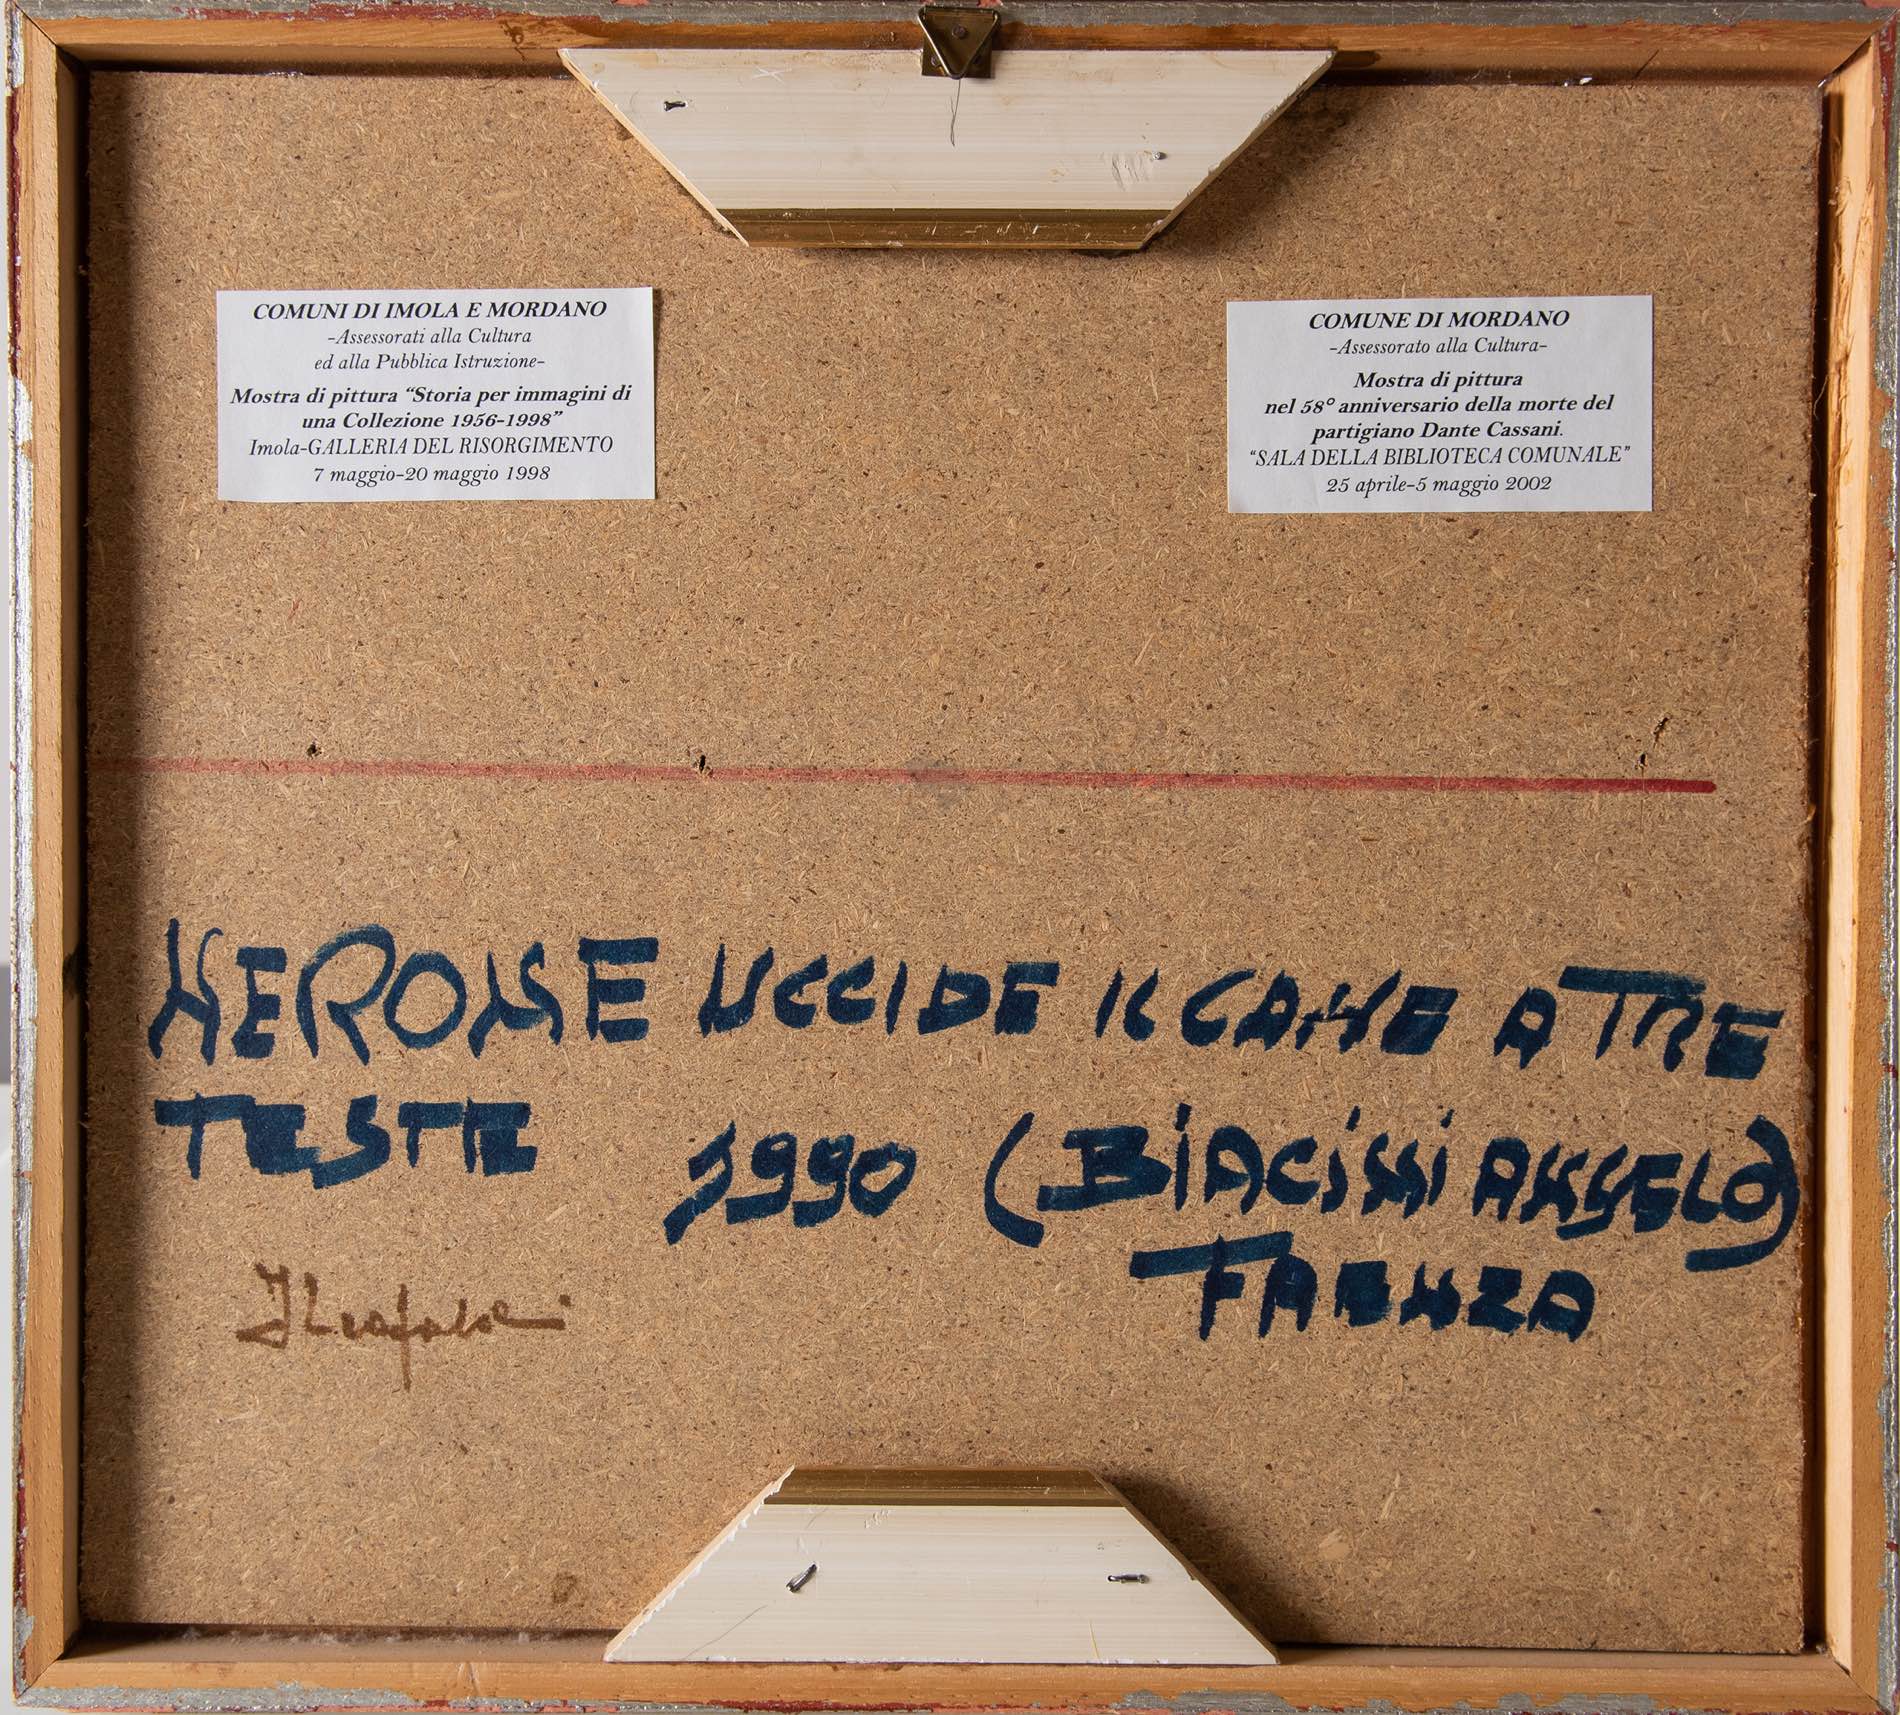 COMUNI DI IMOLA E MORDANO
-Assessorati alla Cultura
ed alla Pubblica Istruzione-
Mostra di pittura “Storia per immagini di
una Collezione 1956-1998”
Imola-GALLERIA DEL RISORGIMENTO
7 maggio-20 maggio 1998
COMUNE DI MORDANO
-Assessorato alla Cultura-
Mostra di pittura
nel 58° anniversario della morte del
partigiano Dante Cassani.
“SALA DELLA BIBLIOTECA COMUNALE”
25 aprile-5 maggio 2002
NERONE UCCIDE IL CANE A TRE
TESTE 1990 (BIACINNI ANGELO)
FAENZA